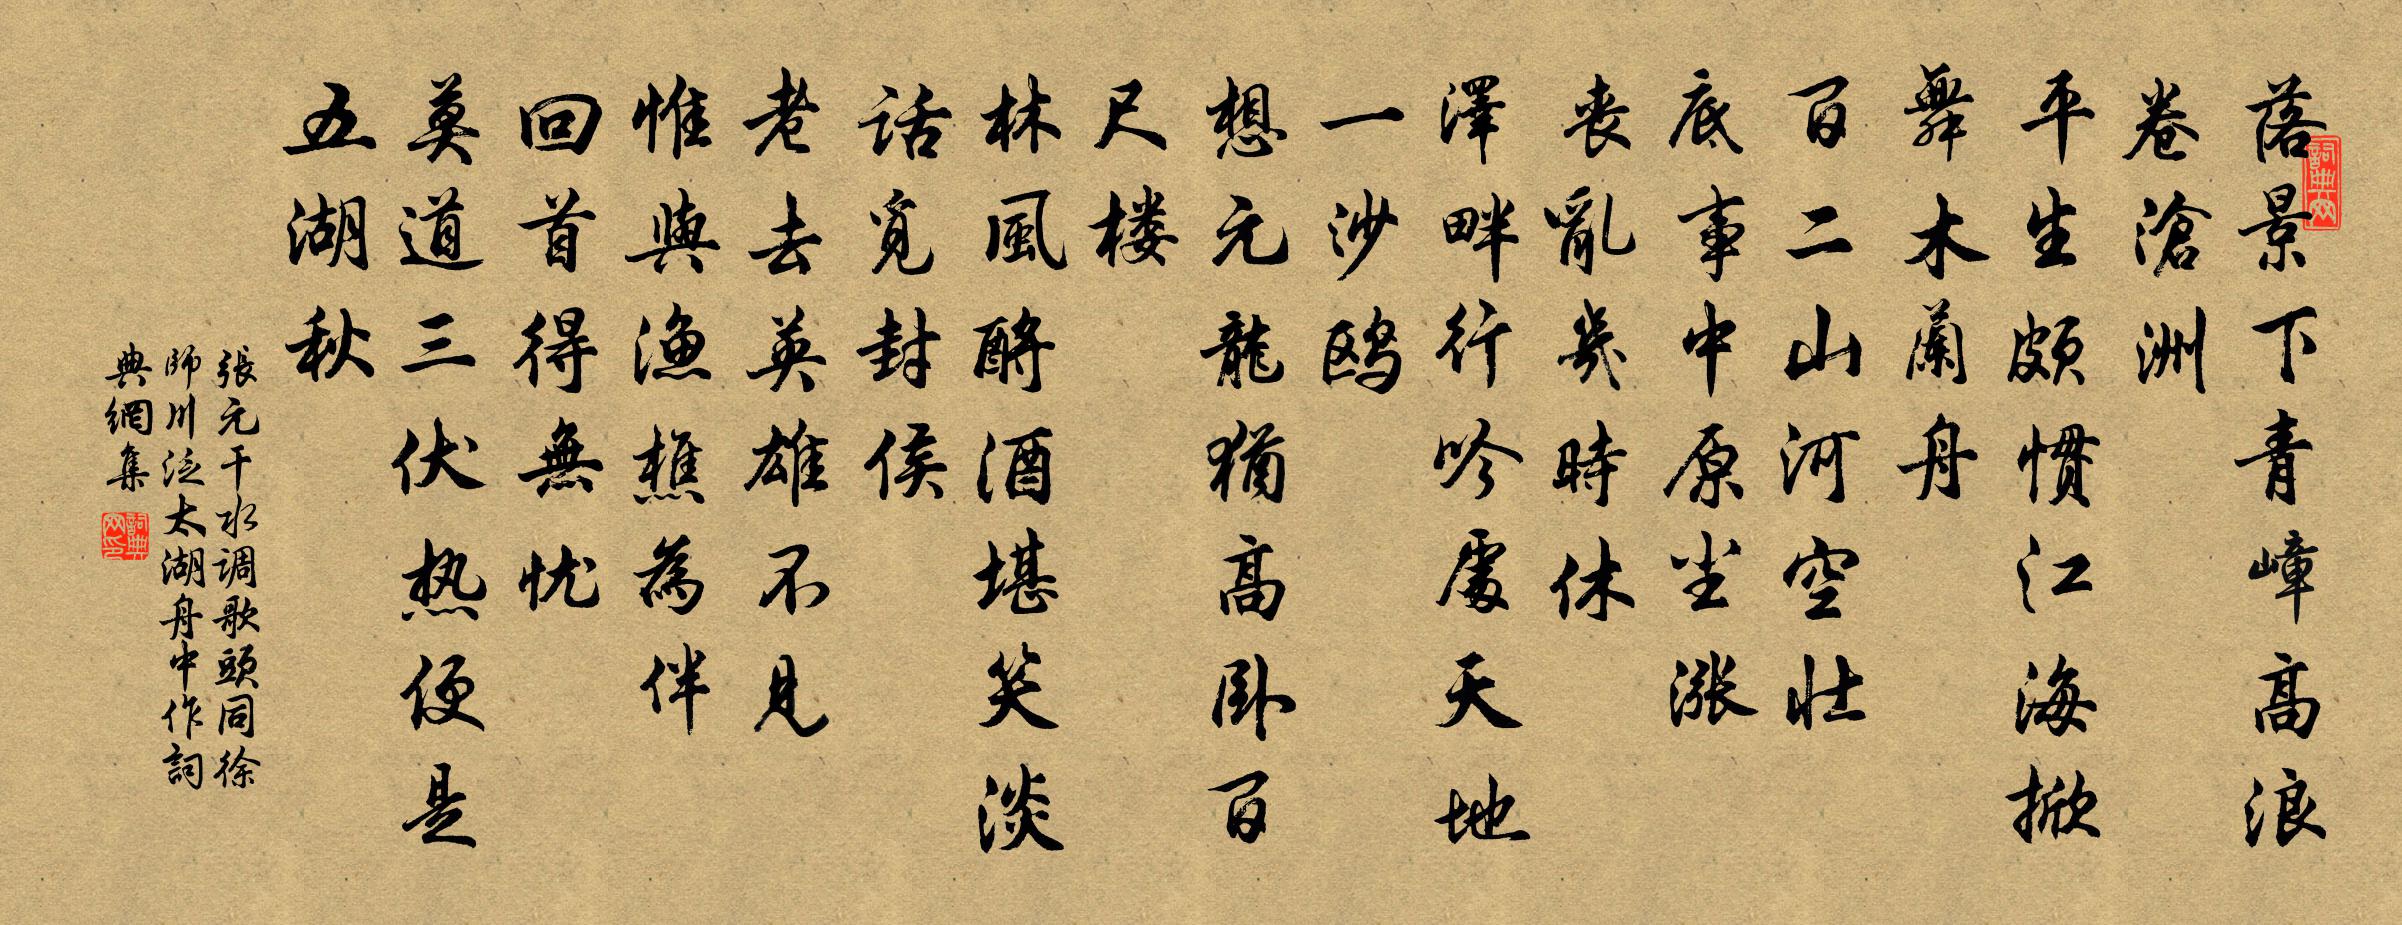 落景下青嶂高浪
卷滄洲
平生頗惯江海掀
舞木蘭舟
百二山河空壮
底事中原尘漲
丧亂幾時休
澤畔行吟處天地
一沙鸥
想元龍猶高卧百
尺楼
林風酹酒堪笑淡
話覓封侯
老去英雄不見
惟與漁樵為伴
回首得無忧
莫道三伏热便是
五湖秋
張元干水调歌頭同徐
師川泛太湖舟中作詞
典網集
詞典网
詞典网印